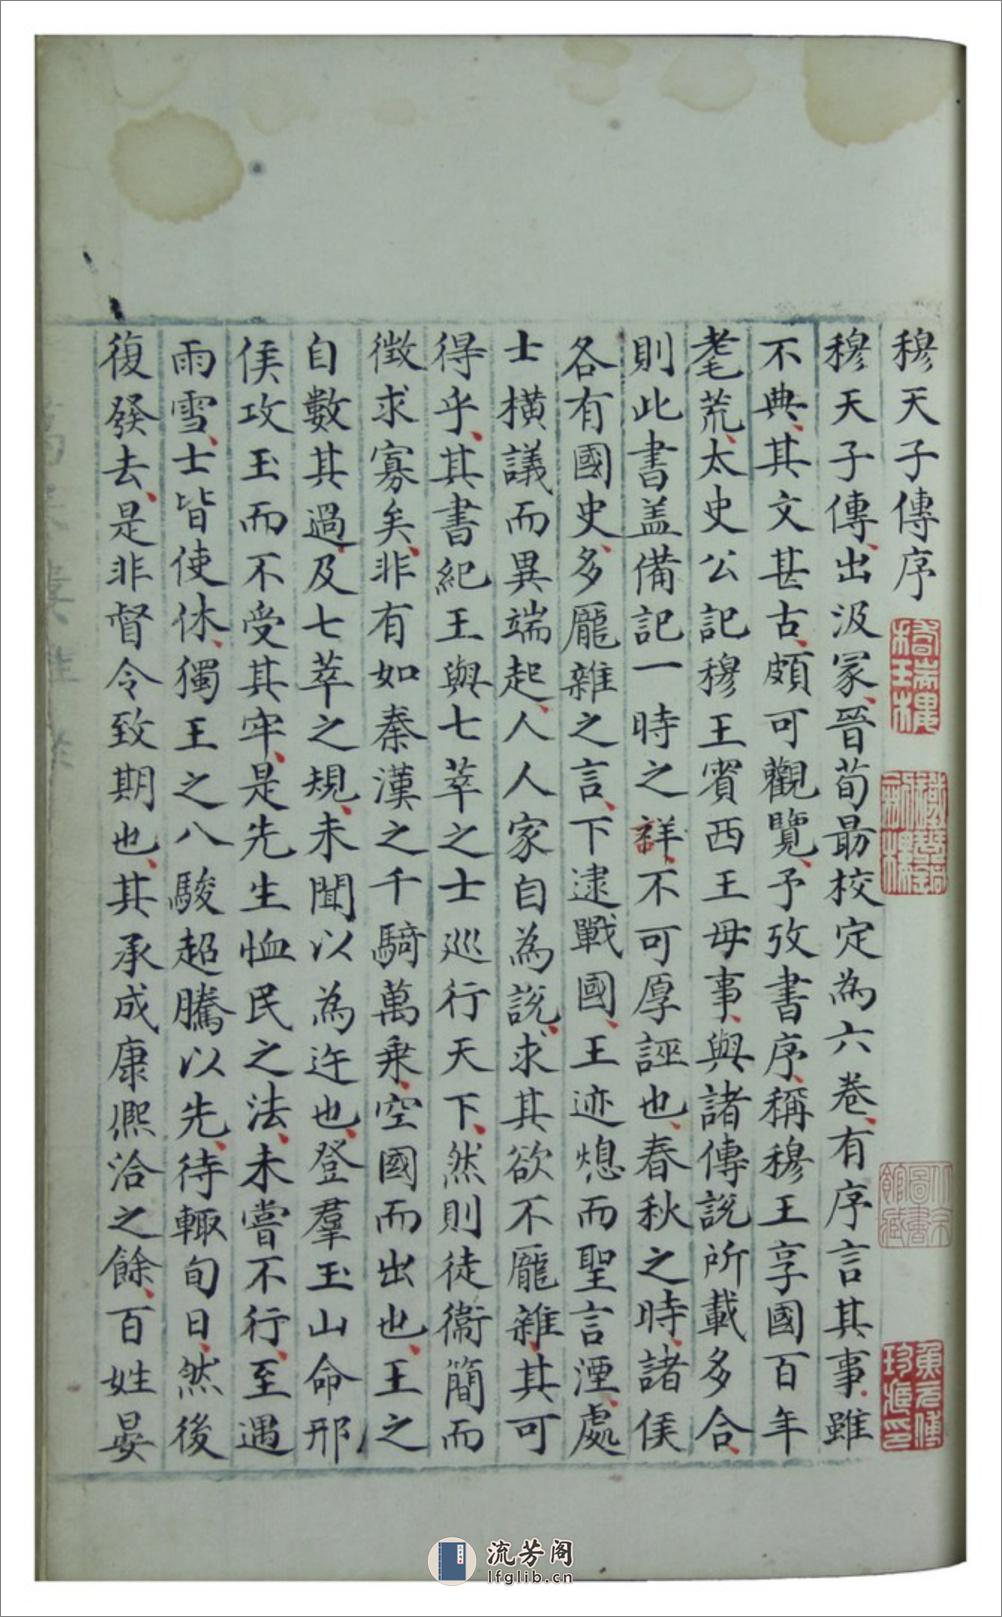 穆天子傳序
穆天子傳出汲冢晉荀勗校定為六卷有序言其事雖
不典其文甚古頗可觀覽予攷書序稱穆王享國百年
耄荒太史公記穆王賓西王母事與諸傳說所載多合
則此書盖備記一時之詳不可厚誣也春秋之時諸侯
各有國史多龎雜之言下逮戰國王迹熄而聖言湮處
士橫議而異端起人人家自為說求其欲不龎雜其可
得乎其書紀王與七萃之士巡行天下然則徒衞簡而
徵求寡矣非有如秦漢之千騎萬乘空國而出也王之
自數其過及七萃之規未聞以為迕也登羣玉山命邢
侯攻玉而不受其牢是先生恤民之法未嘗不行至遇
雨雪士皆使休獨王之八駿超騰以先待輙旬日然後
復發去是非督令致期也其承成康熈洽之餘百姓晏
北京圖書館藏
流芳阁
lfglib.cn